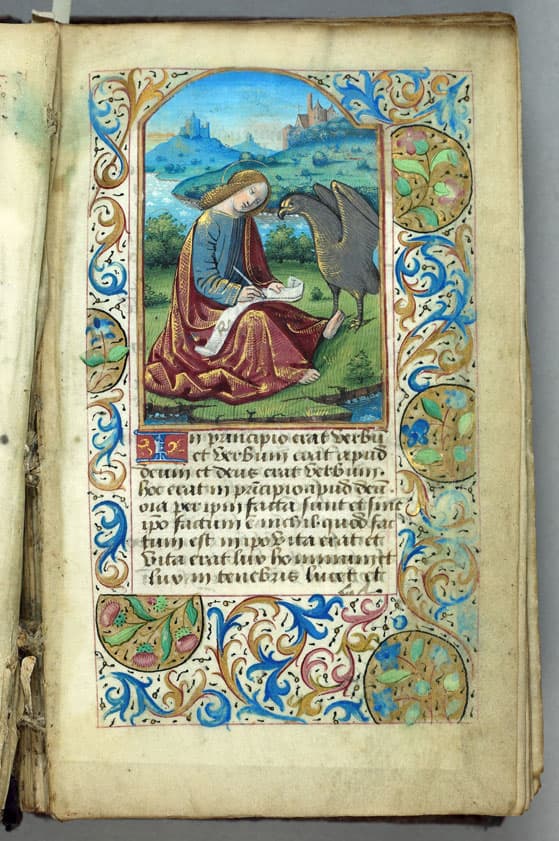 In principio erat verbū
et verbum erat apud
deum et deus erat verbum.
hoc erat in prīcipio apud deū.
oīa per ipm̄ facta sunt et sine
ipō factum ē nichil quod fac
tum est in ipō vita erat et
vita erat lux hominum et
lux in tenebris lucet et